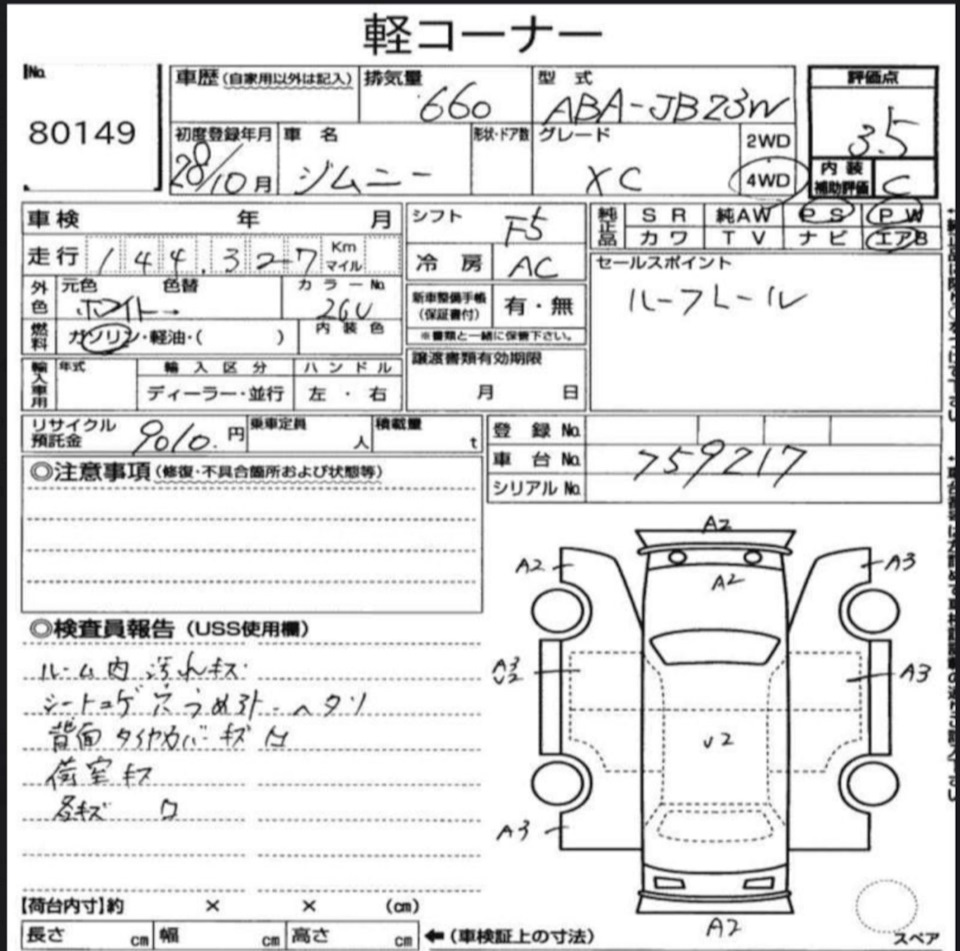 軽コーナー
No. 80149
車歴(自家用以外は記入)
排気量 660
型式 ABA-JB23W
評価点 3.5
初度登録年月 28/10月
車名 ジムニー
形状・ドア数
グレード XC
2WD
4WD
内装補助評価 C
車検 年 月
シフト F5
純正品 SR 純AW PS PW
カワ TV ナビ エアB
走行 144,327 Km マイル
冷房 AC
セールスポイント
ルーフレール
外色 元色 ホワイト→ 色替
カラーNo. 26U
新車整備手帳(保証書付) 有・無
※書類と一緒に保管下さい。
燃料 ガソリン・軽油・( )
内装色
譲渡書類有効期限
月 日
輸入車用 年式 輸入区分 ハンドル
ディーラー・並行 左・右
リサイクル預託金 9010. 円
乗車定員 人
積載量 t
登録No.
車台No. 759217
シリアルNo.
◎注意事項(修復・不具合箇所および状態等)
A2
A2 A3
A2
◎検査員報告(USS使用欄)
ルーム内 汚れキズ
シートコゲ穴うめ跡・ヘタリ
背面タイヤカバーキズ
荷室キズ
各キズ
A3
V2
A3
V2
A3
A2
【荷台内寸】約 × × (cm)
長さ cm 幅 cm 高さ cm ←(車検証上の寸法)
スペア